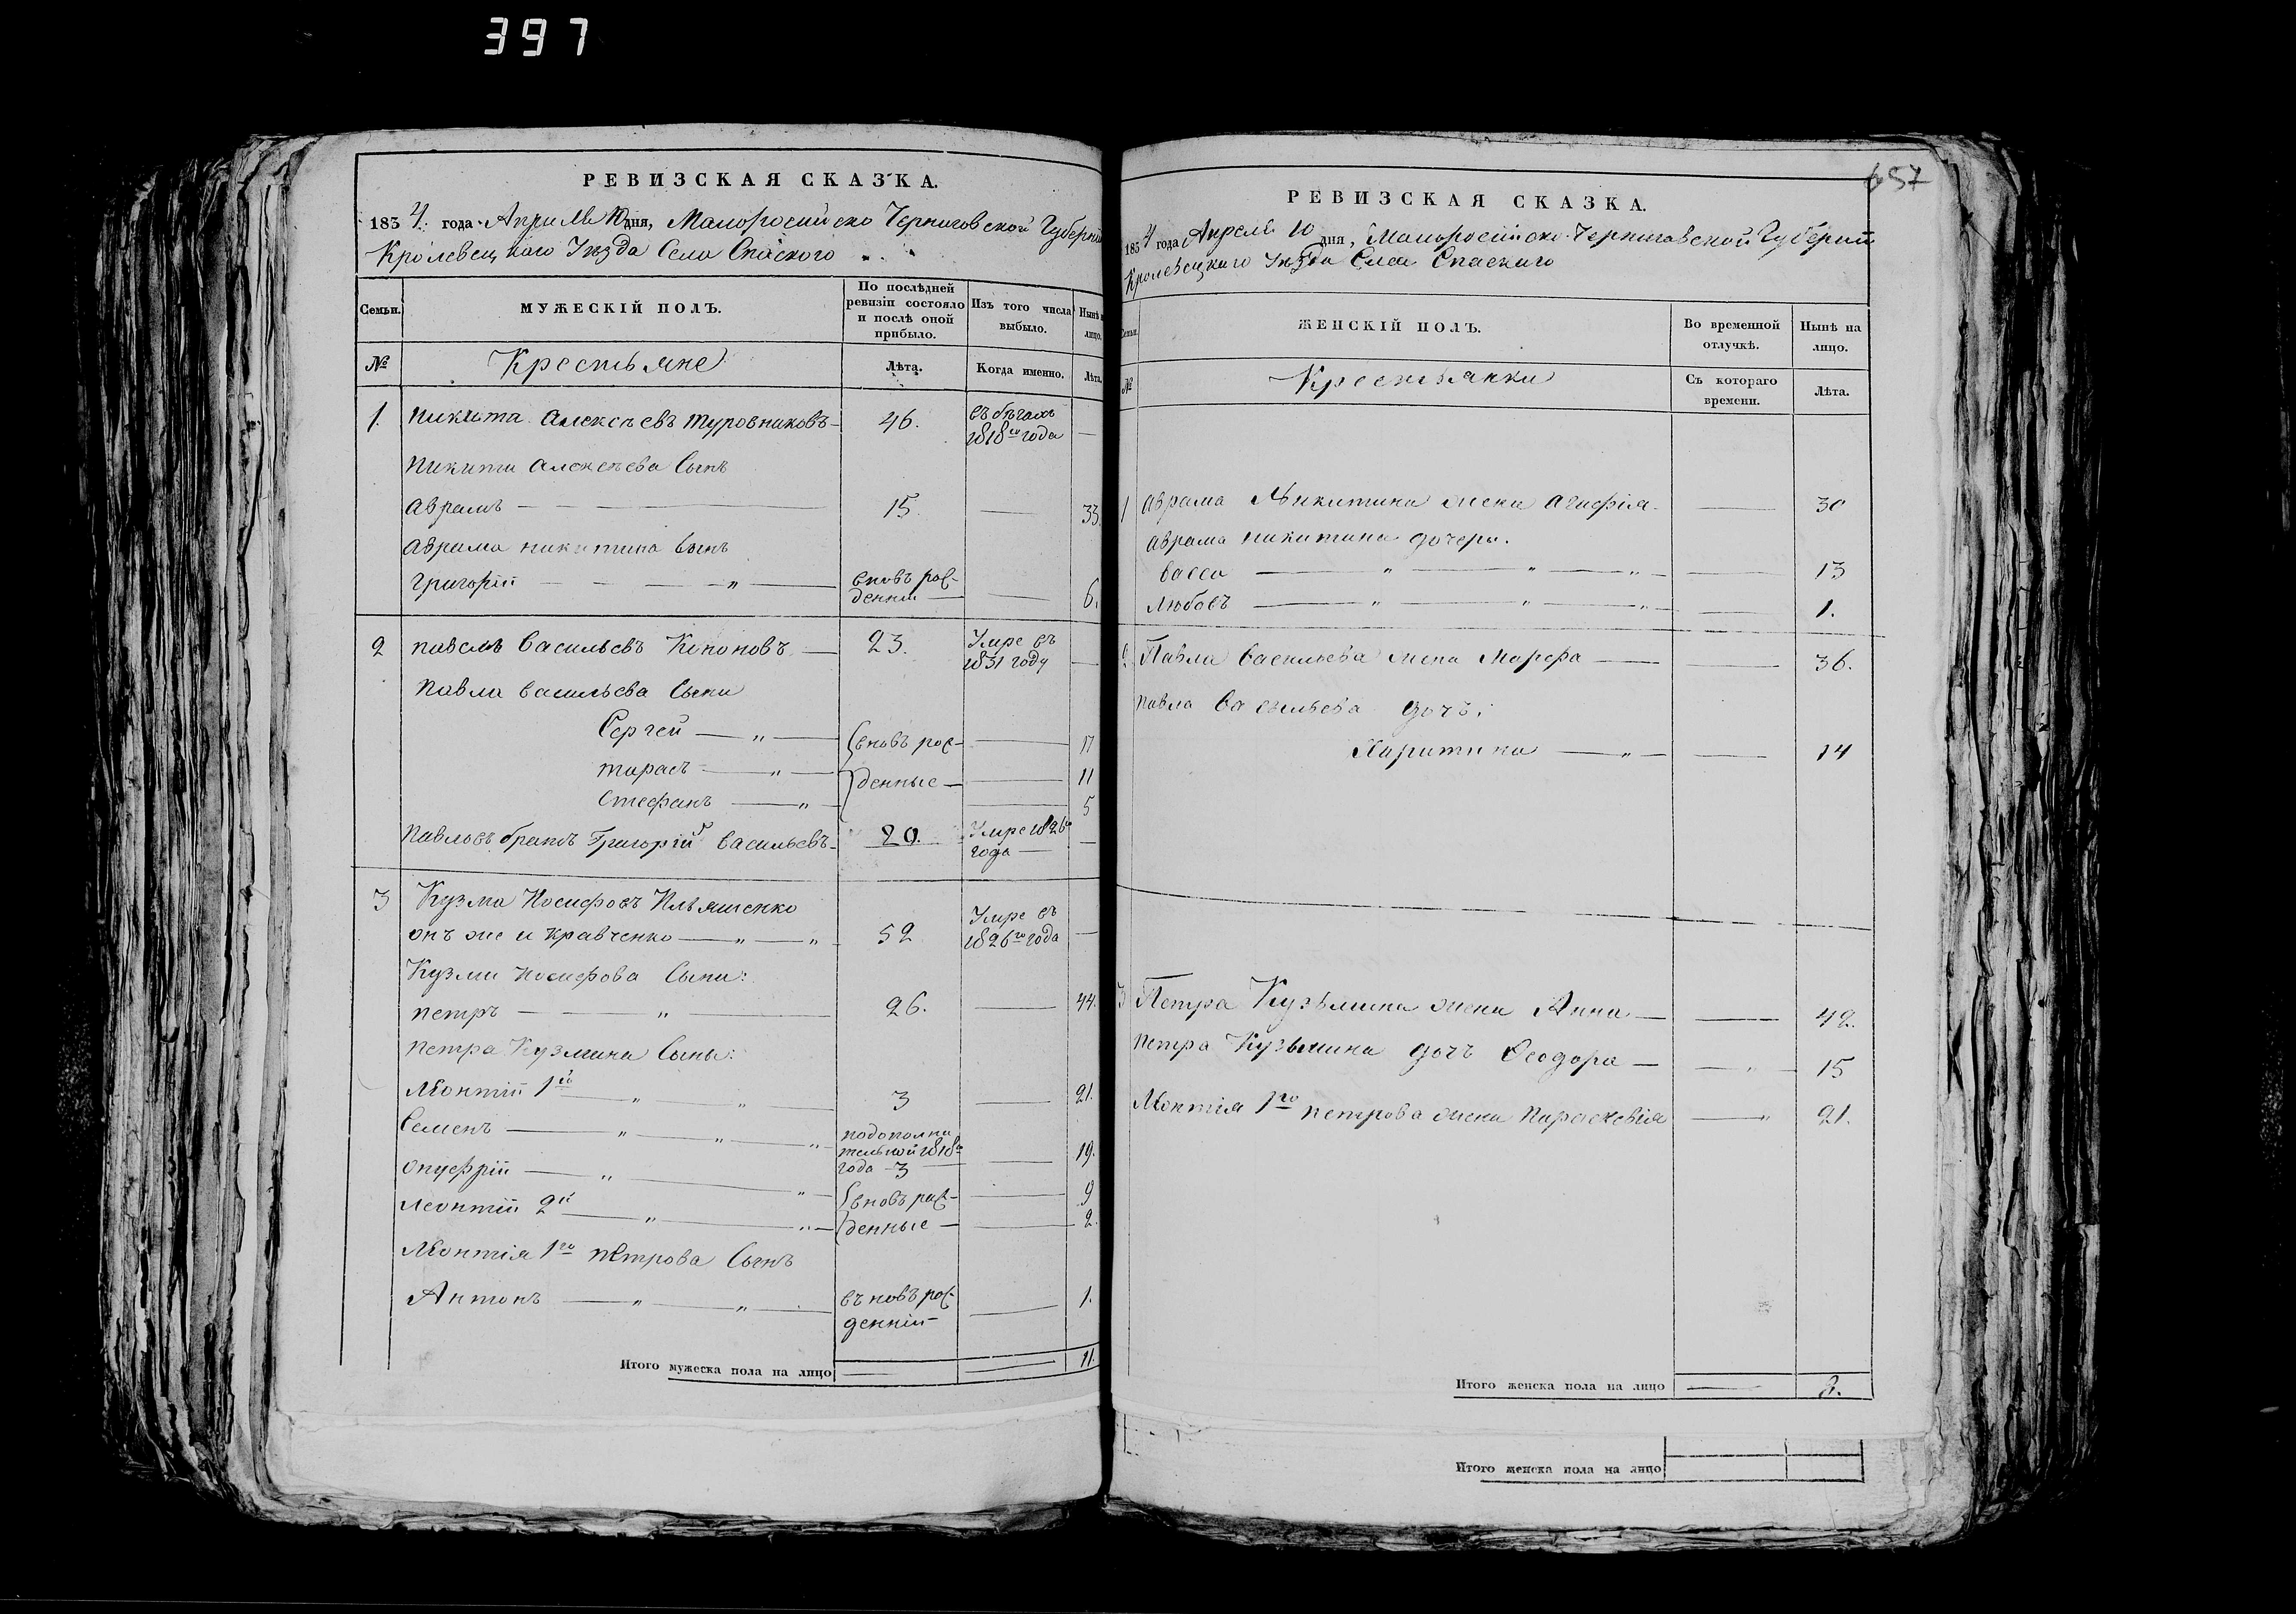 397
РЕВИЗСКАЯ СКАЗКА.
1834. года Апреля 10 дня, Малоросийско Черниговской Губернии
Кролевецкаго Уезда Села Спаского
Семьи.
МУЖЕСКІЙ ПОЛЪ.
По послѣдней
ревизіи состояло
и послѣ оной
прибыло.
Изъ того числа
выбыло.
Нынѣ на
лицо.
№
Крестьяне
Лѣта.
Когда именно.
Лѣта.
1. Никита Алексѣевъ Туровниковъ 46. въ бѣгахъ
1818го года —
Никити Алексѣева Сынъ
Аврамъ — — — 15. — 33.
Аврама Никитина Сынъ
Григорій — — — „ — вновь рож-
денній — — 6.
2 Павелъ Васильевъ Кононовъ — 23. Умре въ
1831 году —
Павла Васильева Сыни
Сергей — „ — вновь рож- — 17
Тарасъ — „ — денные — — 11
Стефанъ — „ — 5
Павловъ братъ Григорій Васильевъ 20. Умре 1826го
года —
3 Кузма Иосифовъ Ильяшенко
онъ же и Кравченко — „ — „ 52 Умре въ
1826го года —
Кузми Иосифова Сыни:
Петръ — — „ — 26. — 44.
Петра Кузмина Сыны:
Леонтій 1й — „ — „ — 3 — 21.
Семенъ — „ — „ — „ подополни
тельной 1818го
года — 3 — 19.
Онуфрій — „ — „ — вновь рож- — 9
Леонтій 2й — „ — „ — денные — — 2.
Леонтія 1го Петрова Сынъ
Антонъ — „ — „ — въновь рож-
денній — 1.
Итого мужеска пола на лицо — — 11.
657
РЕВИЗСКАЯ СКАЗКА.
1834 года Апреля 10 дня, Малоросийско Черниговской Губернии
Кролевецкаго Уезда Села Спаскаго
Семьи.
ЖЕНСКІЙ ПОЛЪ.
Во временной
отлучкѣ.
Нынѣ на
лицо.
№
Крестьянки
Съ котораго
времени.
Лѣта.
1 Аврама Никитина жена Агафія — 30
Аврама Никитина дочери.
Васса — „ — „ — „ — 13
Любовъ — „ — „ — „ — 1.
2 Павла Васильева жена Марфа — — 36.
Павла Васильева дочь:
Харитина — „ — 14
3 Петра Кузьмина жена Анна — — 42.
Петра Кузьмина дочь Феодора — — „ — 15
Леонтія 1го Петрова жена Параскевія — „ 21.
Итого женска пола на лицо — 8.
Итого женска пола на лицо